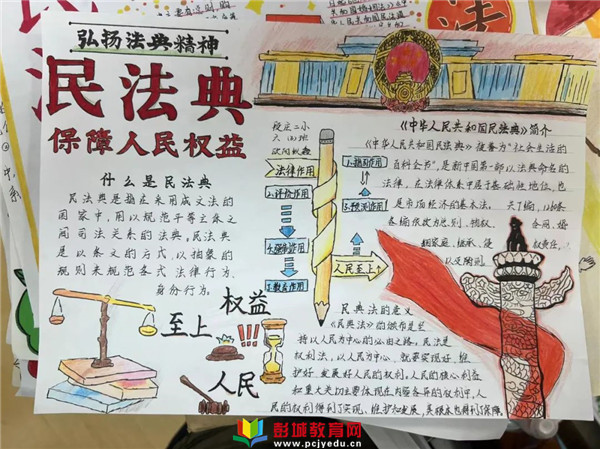 弘扬法典精神
民法典
保障人民权益
什么是民法典
民法典是指在采用成文法的
国家中,用以规范平等主体之
间司法关系的法典,民法典
是以条文的方式,以抽象的
规则来规范各式法律行为
身份行为。
权益
至上
人民
法律作用
2.评价作用
5.教育作用
1.指引作用
3.预测作用
人民至上
《中华人民共和国民法典》简介
《中华人民共和国民法典》被誉为"社会生活的
百科全书",是新中国第一部以法典命名的
法律,在法律体系中居于基础性地位,也
是市场经济的基本法。
各编依次为总则、物权、合同、
婚姻家庭、继承、侵权责任、
以及附则。
民典法的意义
《民典法》的颁布是坚
持以人民为中心的必由之路,民法是
权利法,以人民为中心,就要实现好、维
护好、发展好人民的权利,人民的核心利益
和重大关切主要体现在内容各异的权利中,人
民的权利得到了实现、维护和发展,
彭城教育网
www.pcjyedu.cn